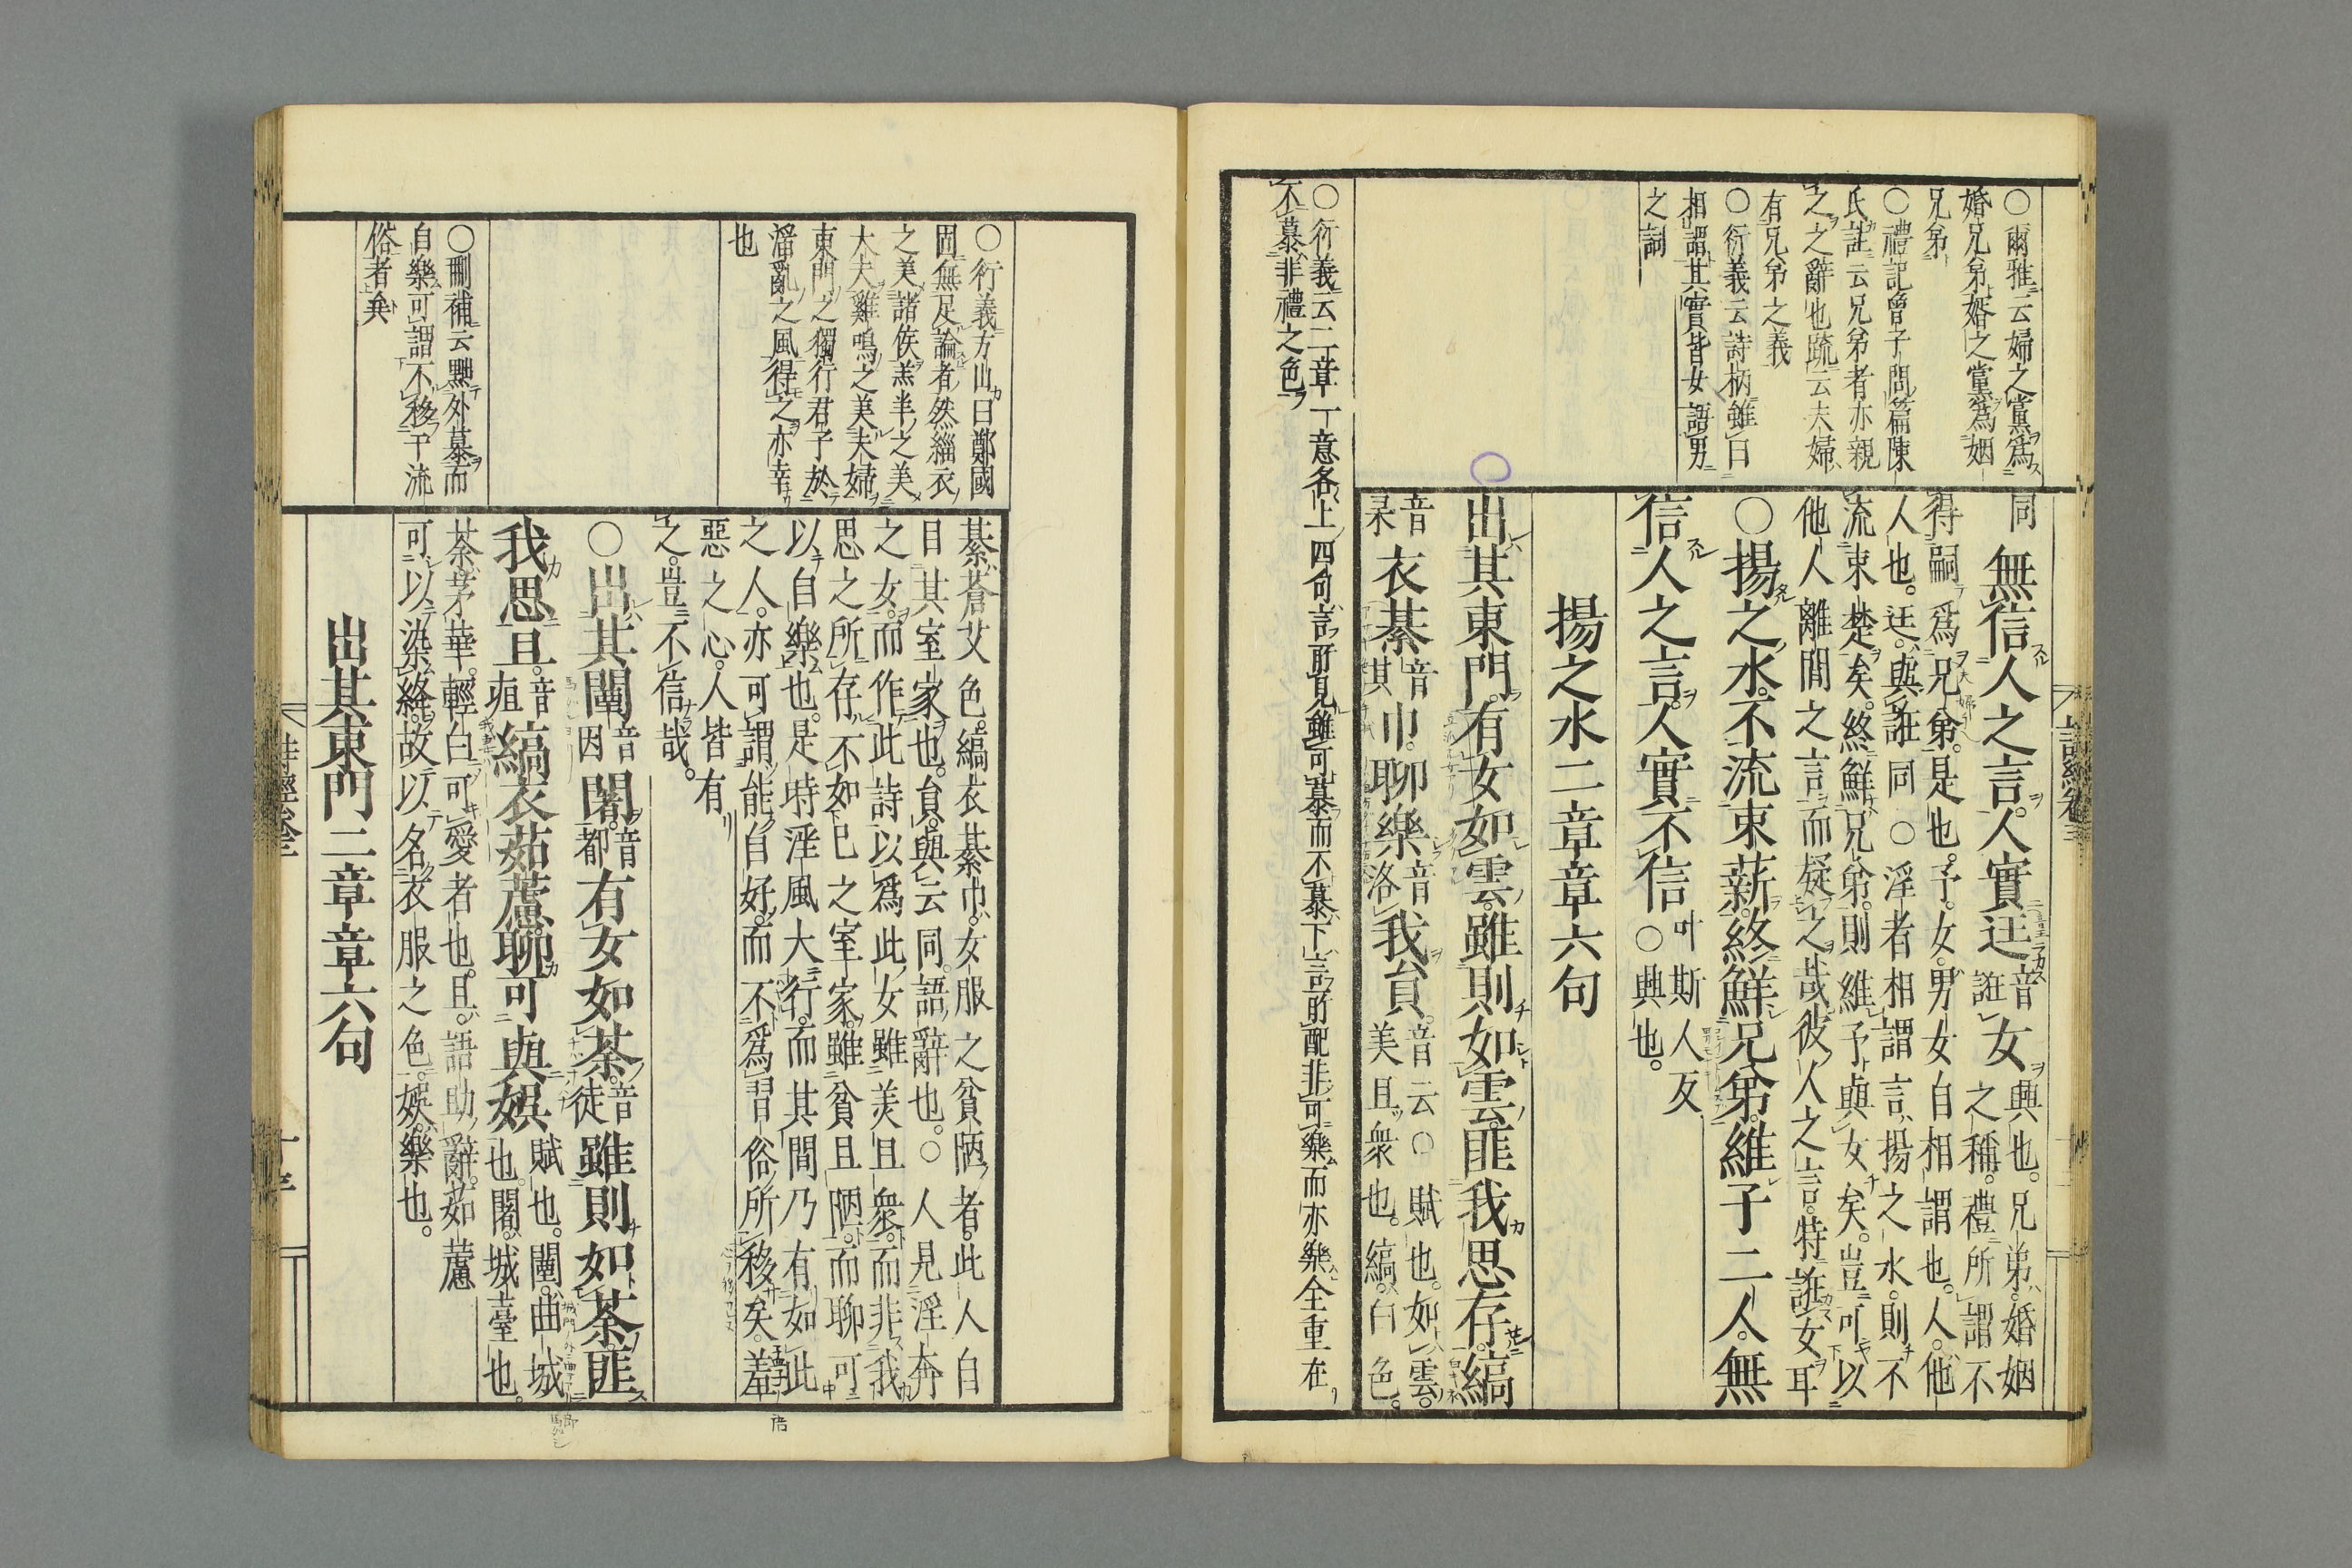 ○爾雅云婦之黨爲
婚兄弟婿之黨爲姻
兄弟
○禮記曾子問篇陳
氏註云兄弟者亦親
之之辭也疏云夫婦
有兄弟之義
○衍義云詩柄雖曰
相謂其實皆女語男
之詞
同無信人之言。人實迋音誑女興也。兄弟。婚姻
之稱。禮所謂不
得嗣爲兄弟。是也。予。女。男女自相謂也。人。他
人也。迋。與誑同○淫者相謂言、揚之水。則不
流束楚矣。終鮮兄弟。則維予與女矣。豈可以
他人離間之言而疑之哉彼人之言。特誑女耳
○揚之水。不流束薪。終鮮兄弟。維予二人。無
信人之言。人實不信叶斯人反
○興也。
揚之水二章章六句
出其東門。有女如雲。雖則如雲。匪我思存。縞
音杲衣綦音其巾。聊樂音洛我員。音云○賦也。如雲。
美且衆也。縞。白色。
○衍義云二章一意各上四句言所見雖可慕而不慕下言所配非可樂而亦樂全重在
不慕非禮之色
○衍義方山曰鄭國
固無足論者然緇衣
之美諸侯羔羊之美
大夫雞鳴之美夫婦
東門之獨行君子於
淫亂之風得之亦幸
也
○刪補云點外慕而
自樂可謂不移于流
俗者矣
綦。蒼艾色。縞衣綦巾。女服之貧陋者。此人自
目其室家也。員。與云同。語辭也。○人見淫奔
之女。而作此詩以爲此女雖美且衆。而非我
思之所存。不如已之室家。雖貧且陋。而聊可
以自樂也。是時淫風大行。而其間乃有如此
之人。亦可謂能自好。而不爲習俗所移矣。羞
惡之心。人皆有
之。豈不信哉。
○出其闉音因闍。音都有女如荼。音徒雖則如荼。匪
我思且。音疽縞衣茹藘。聊可與娛賦也。闉。曲城
也。闍。城臺也。
荼。茅華。輕白可愛者也。且。語助辭。茹藘
可以染絳。故以名衣服之色。娛。樂也。
出其東門二章章六句
詩經卷三